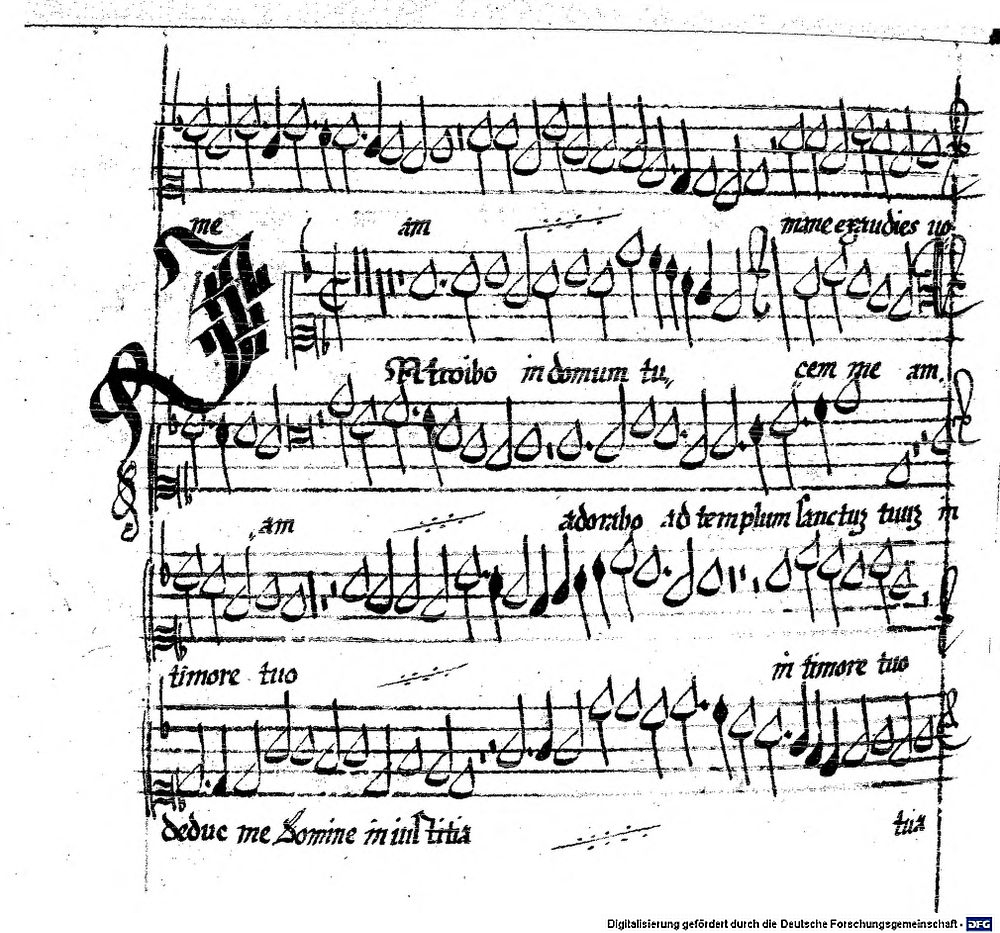 me am mane exaudies uo
Introibo in domum tu, cem me am.
am adorabo ad templum sanctuȝ tuuȝ in
timore tuo in timore tuo
deduc me Domine in iustitia tua
Digitalisierung gefördert durch die Deutsche Forschungsgemeinschaft - DFG